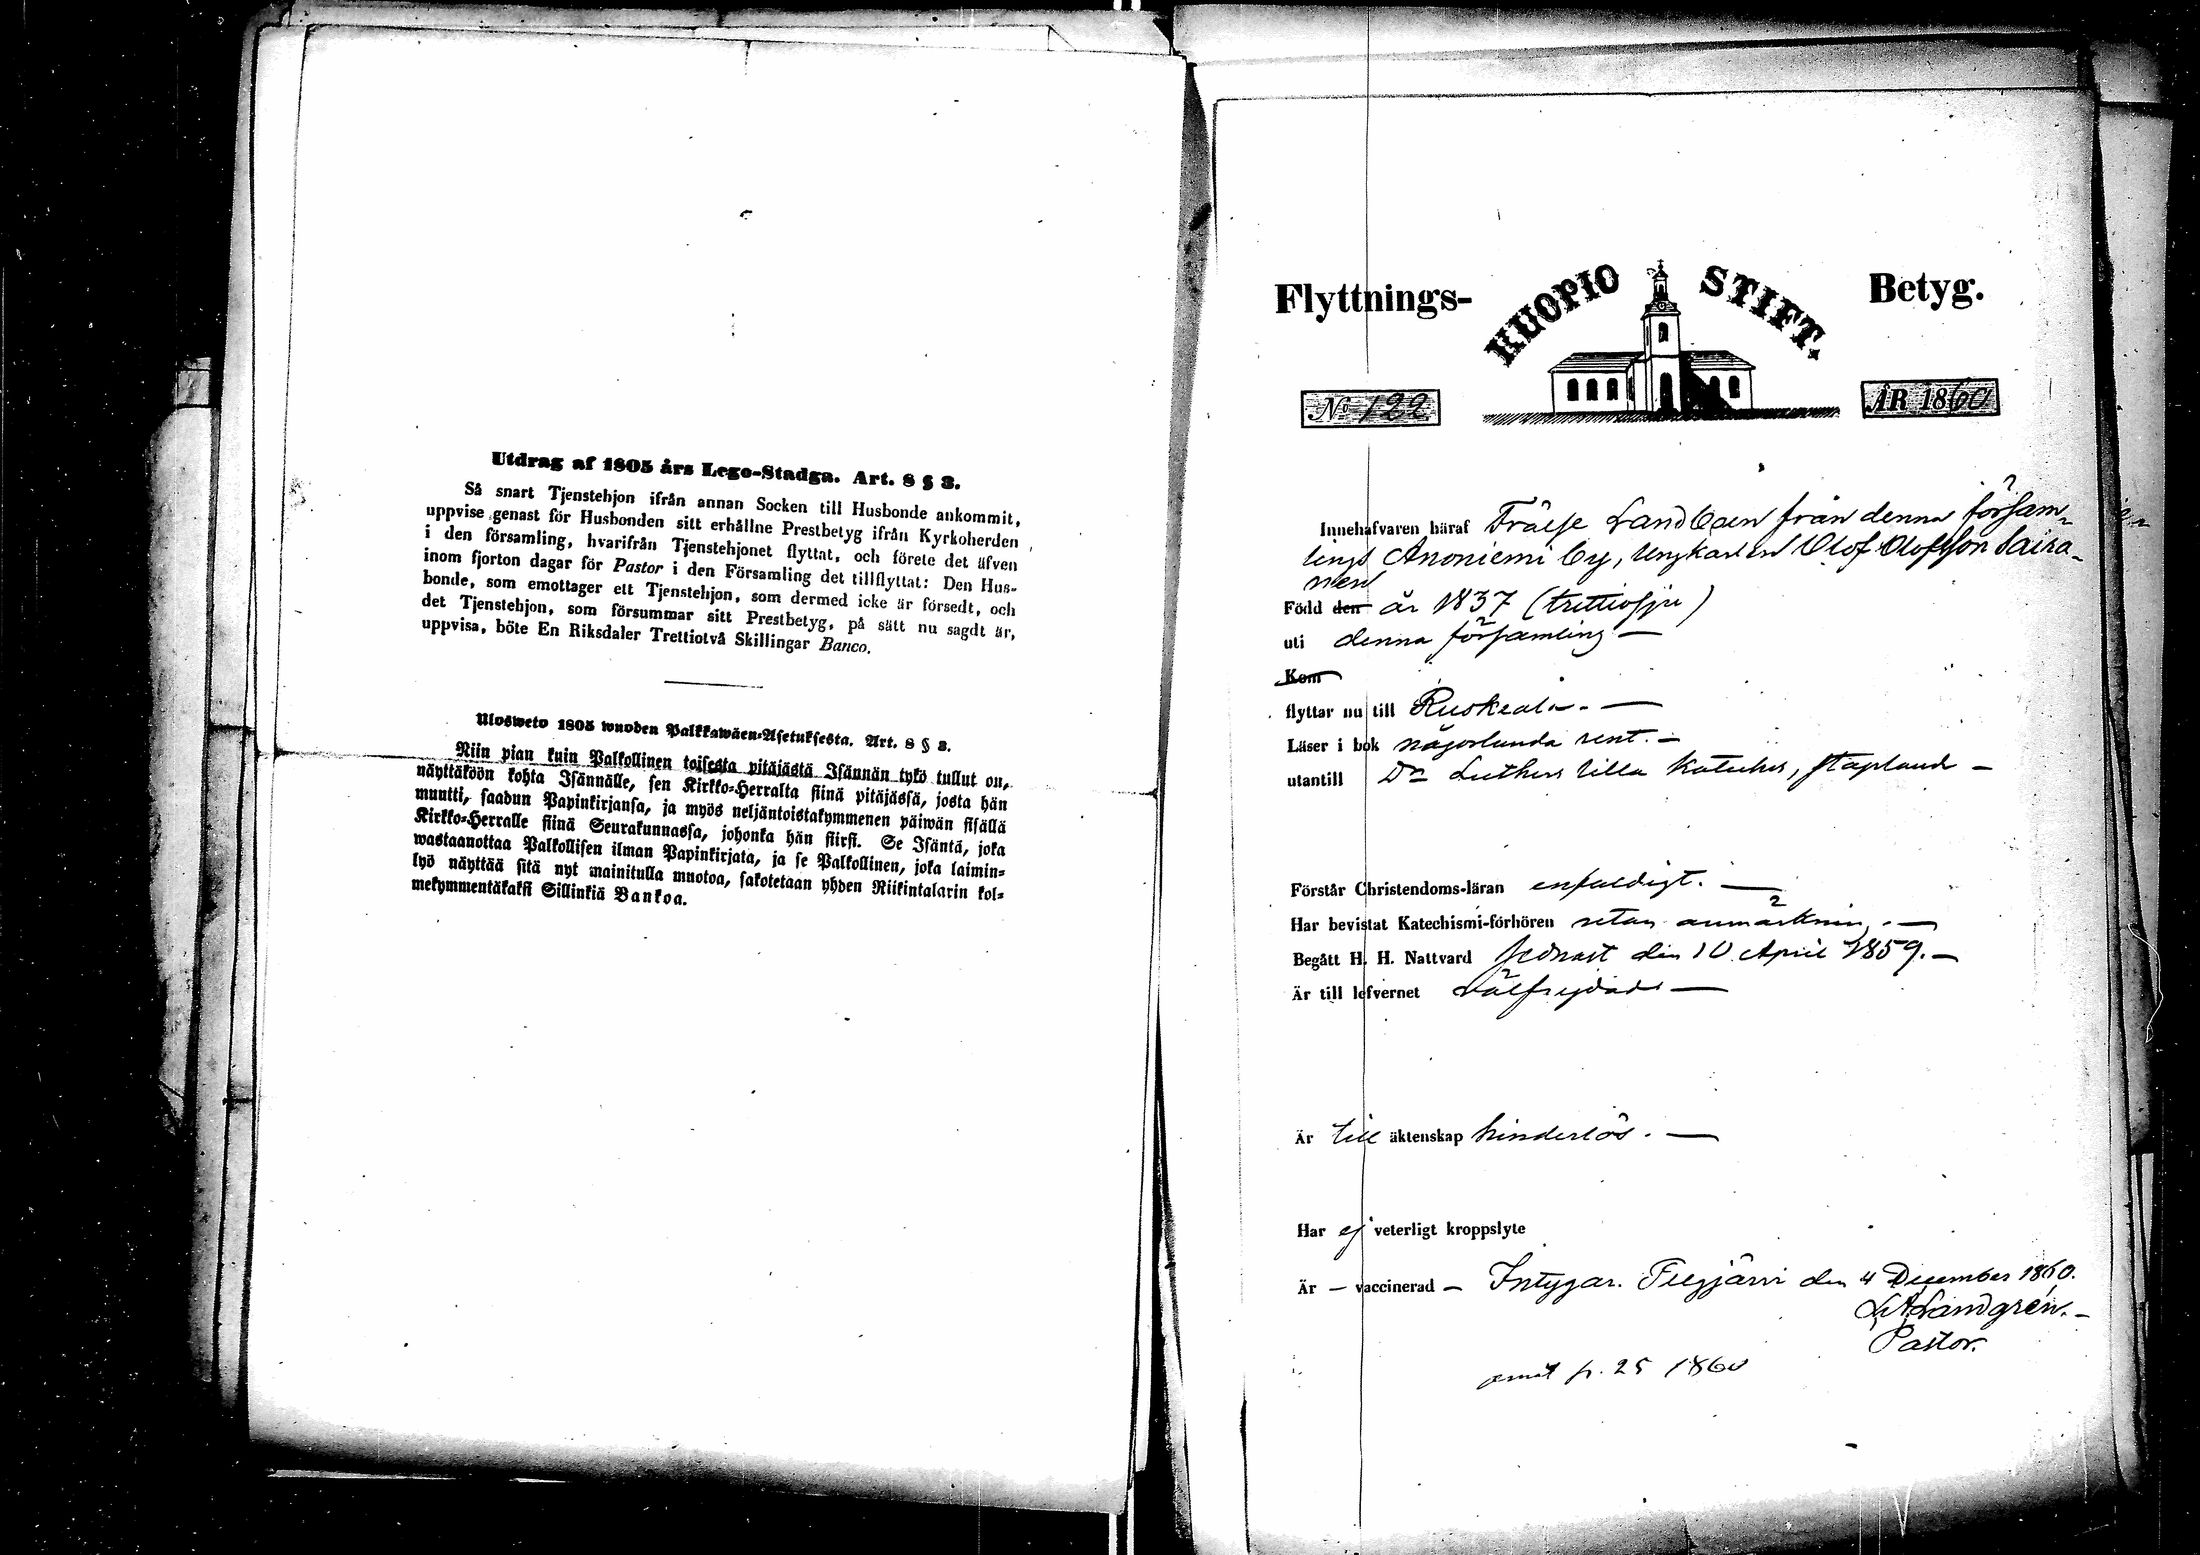 Utdrag af 1805 års Lego-Stadga. Art. 8 § 3.
Så snart Tjenstehjon ifrån annan Socken till Husbonde ankommit,
uppvise genast för Husbonden sitt erhållne Prestbetyg ifrån Kyrkoherden
i den församling, hvarifrån Tjenstehjonet flyttat, och förete det äfven
inom fjorton dagar för Pastor i den Församling det tillflyttat: Den Hus-
bonde, som emottager ett Tjenstehjon, som dermed icke är försedt, och
det Tjenstehjon, som försummar sitt Prestbetyg, på sätt nu sagdt är,
uppvisa, böte En Riksdaler Trettiotvå Skillingar Banco.
Ulosweto 1805 wuoden Palkkawäen-Asetuksesta. Art. 8 § 3.
Niin pian kuin Palkollinen toisesta pitäjästä Isännän tykö tullut on,
näyttäköön kohta Isännälle, sen Kirkko-Herralta siinä pitäjässä, josta hän
muutti, saadun Papinkirjansa, ja myös neljäntoistakymmenen päiwän sisällä
Kirkko-Herralle siinä Seurakunnassa, johonka hän siirsi. Se Isäntä, joka
wastaanottaa Palkollisen ilman Papinkirjata, ja se Palkollinen, joka laimin-
lyö näyttää sitä nyt mainitulla muotoa, sakotetaan yhden Riikintalarin kol-
mekymmentäkaksi Sillinkiä Bankoa.
Flyttnings- KUOPIO STIFT. Betyg.
No 122 ÅR 1860
Innehafvaren häraf Frälse Landboen från denna försam-
lings Anoniemi by, Ungkarlen Olof Olofsson Saira-
nen
Född den år 1837 (trettiosju)
uti denna församling —
Kom
flyttar nu till Ruskeala. —
Läser i bok någorlunda rent. —
utantill Dr Luthers lilla Kateches, staplande —
Förstår Christendoms-läran enfaldigt. —
Har bevistat Katechismi-förhören utan anmärkning. —
Begått H. H. Nattvard sednast den 10 April 1859. —
Är till lefvernet välfrejdad —
Är till äktenskap hinderlös. —
Har ej veterligt kroppslyte
Är — vaccinerad — Intygar. Suojärvi den 4 December 1860.
Landgrén. —
Pastor.
p. 25 1860